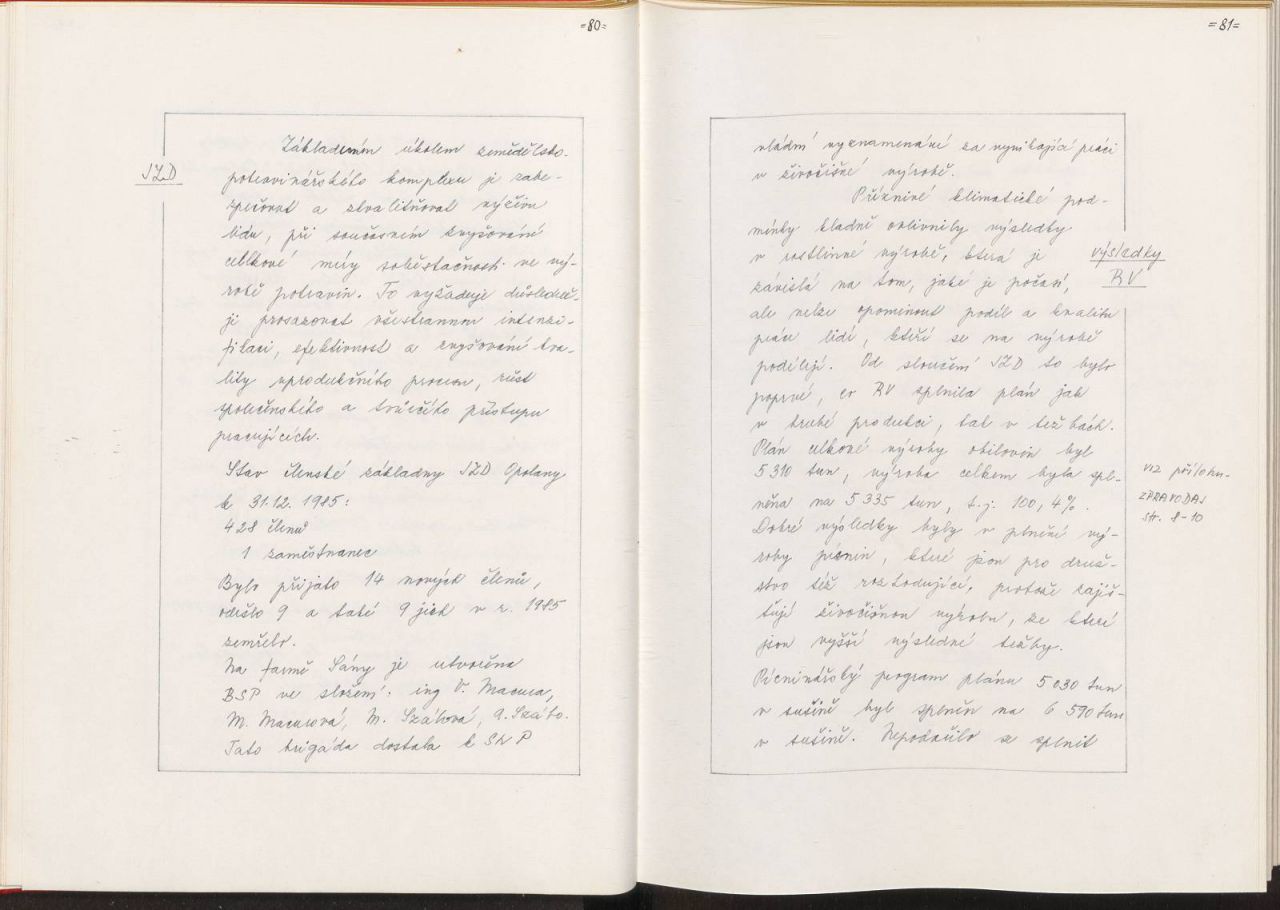 =80=
JZD
Základním úkolem zemědělsko-
potravinářského komplexu je zabe-
zpečovat a zkvalitňovat výživu
lidu, při současném zvyšování
celkové míry soběstačnosti ve vý-
robě potravin. To vyžaduje důsledně-
ji prosazovat všestrannou intenzi-
fikaci, efektivnost a zvyšování kva-
lity reprodukčního procesu, růst
společenského a tvůrčího přístupu
pracujících.
Stav členské základny JZD Opolany
k 31.12. 1985:
428 členů
1 zaměstnanec
Bylo přijato 14 nových členů,
odešlo 9 a také 9 jich v r. 1985
zemřelo.
Na farmě Sány je utvořena
BSP ve složení: ing V. Macura,
M. Macurová, M. Szábová, A. Szábo.
Tato brigáda dostala k SNP
=81=
vládní vyznamenání za vynikající práci
v živočišné výrobě.
Příznivé klimatické pod-
mínky kladně ovlivnily výsledky
v rostlinné výrobě, která je
závislá na tom, jaké je počasí,
ale nelze opominout podíl a kvalitu
práce lidí, kteří se na výrobě
podílejí. Od sloučení JZD to bylo
poprvé, co RV splnila plán jak
v hrubé produkci, tak v tržbách.
Plán celkové výroby obilovin byl
5 310 tun, výroba celkem byla spl-
něna na 5 335 tun, t.j. 100,4%.
Dobré výsledky byly v plnění vý-
roby pícnin, které jsou pro druž-
stvo též rozhodující, protože zajiš-
ťují živočišnou výrobu, ze které
jsou vyšší výsledné tržby.
Pícninářský program plánu 5 030 tun
v sušině byl splněn na 6 590 tun
v sušině. Nepodařilo se splnit
výsledky
RV
viz příloha-
ZPRAVODAJ
str. 8-10